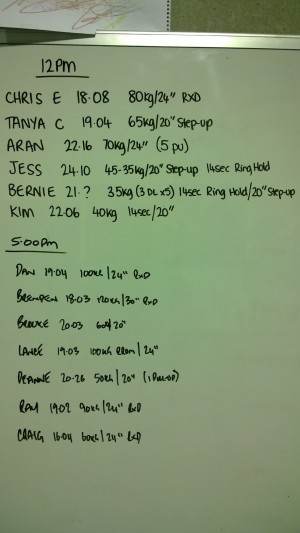 12pm
CHRIS E 18.08 80kg/24" RXD
TANYA C 19.04 65kg/20" Step-up
ARAN 22.16 70kg/24" (5 pu)
JESS 24.10 45-35kg/20" Step-up 14sec Ring Hold
BERNIE 21.? 35kg (3 DL x5) 14sec Ring Hold/20" Step-up
KIM 22.06 40kg 14sec/20"
5:00pm
DAN 19:04 100kg/24" RxD
18:03 120kg/30" RxD
BROOKE 20:03 20"
LANCE 19:03 100kg 24"
DEANNE 20:26 50kg/20" (1 Pull-up)
19:02 90kg/24" RxD
CRAIG 16:04 60kg/24" RxD